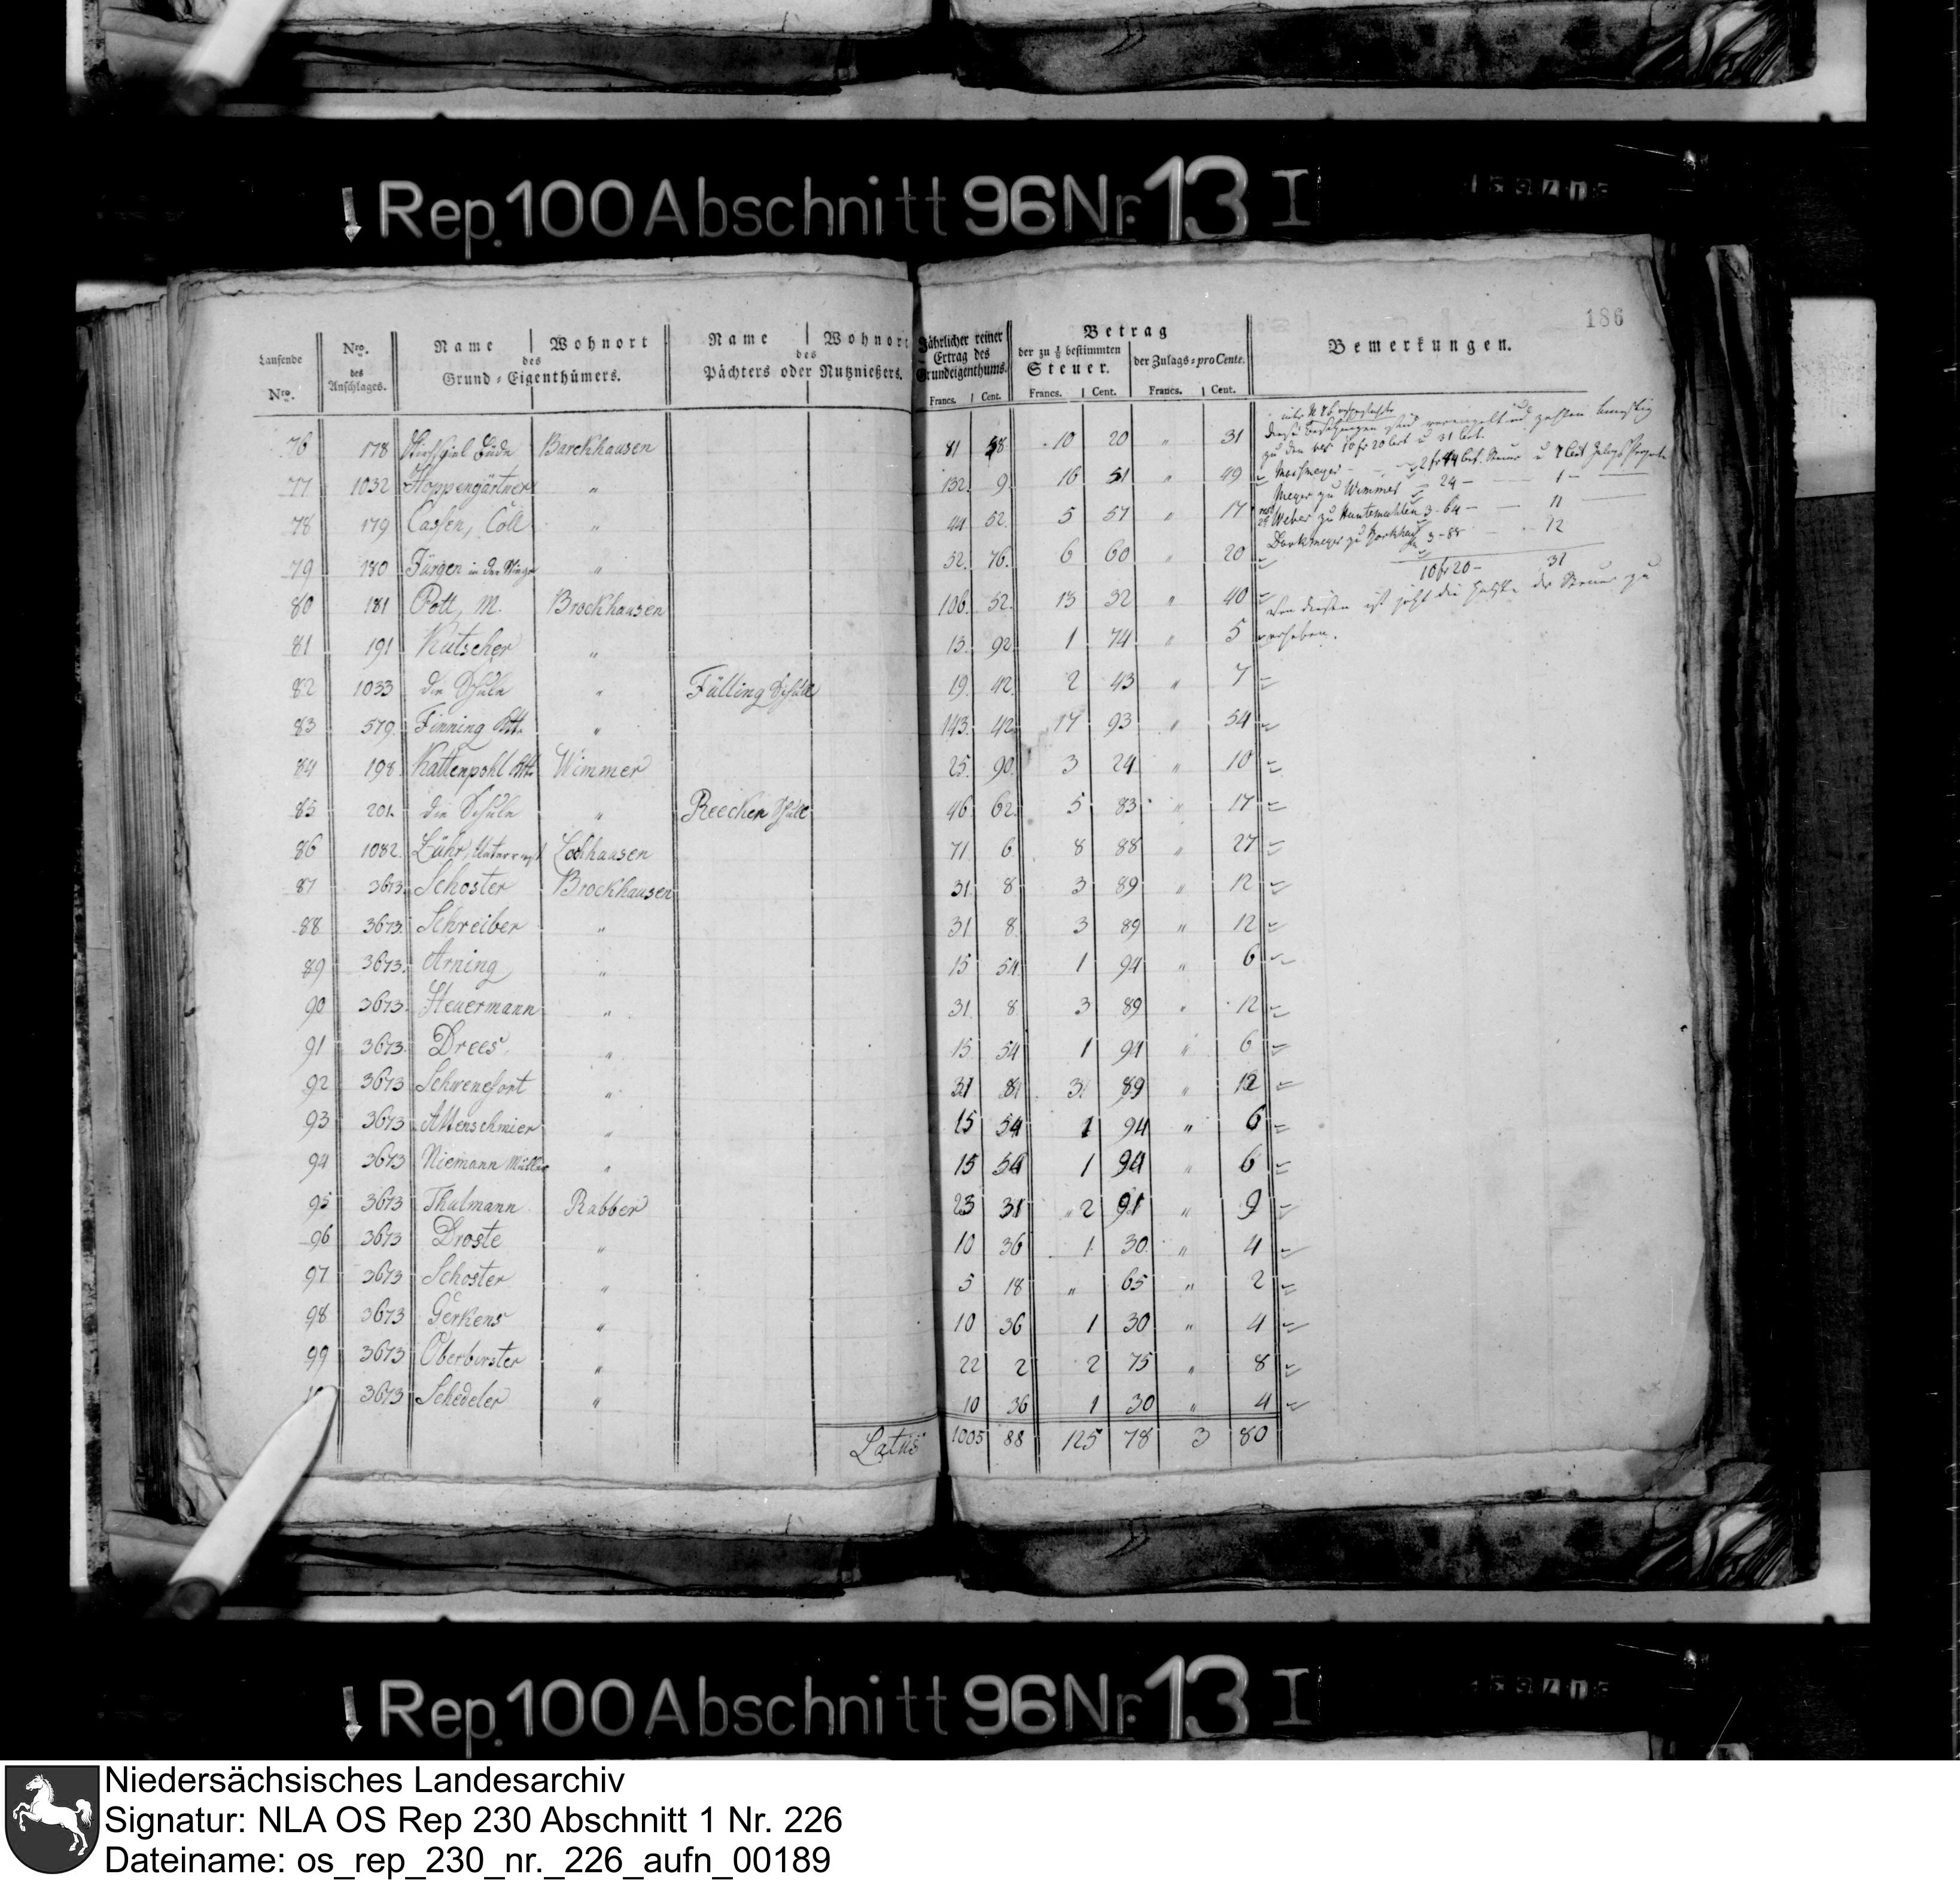 Rep. 100 Abschnitt 96 Nr. 13 I
186
Laufende Nro. | Nro. des Anschlages. | Name | Wohnort des Grund-Eigenthümers. | Name | Wohnort des Pächters oder Nutznießers. | Jährlicher reiner Ertrag des Grundeigenthums. Francs. Cent. | Betrag der zu 1/8 bestimmten Steuer. Francs. Cent. | der Zulags-pro Cente. Francs. Cent. | Bemerkungen.
76 178 Barckhausen 81 58 10 20 " 31
77 1032 Hoppengärtner " 132 9 16 51 " 49
78 179 Cassen, Coll " 44 52 5 57 " 17
79 180 Jürgen in der Wiege " 52 76 6 60 " 20
80 181 Pott, M. Brockhausen 106 52 13 32 " 40
81 191 Kutscher " 13 92 1 74 " 5
82 1033 die Schule " Fülling 19 42 2 43 " 7
83 579 Finning " 143 42 17 93 " 54
84 198 Kattenpohl Wimmer 25 90 3 24 " 10
85 201 die Schule " Reecken 46 62 5 83 " 17
86 1082 Lühr, Lockhausen 71 6 8 88 " 27
87 3673 Schoster Brockhausen 31 8 3 89 " 12
88 3673 Schreiber " 31 8 3 89 " 12
89 3673 Arning " 15 54 1 94 " 6
90 3673 Heuermann " 31 8 3 89 " 12
91 3673 Drees " 15 54 1 94 " 6
92 3673 Schwenefort " 31 8 3 89 " 12
93 3673 Attenschmier " 15 54 1 94 " 6
94 3673 Niemann Müller " 15 54 1 94 " 6
95 3673 Thalmann Rabber 23 31 2 91 " 9
96 3673 Droste " 10 36 1 30 " 4
97 3673 Schoster " 5 18 " 65 " 2
98 3673 Gerkens " 10 36 1 30 " 4
99 3673 Oberburster " 22 2 2 75 " 8
3673 Schedeler " 10 36 1 30 " 4
Latus 1005 88 125 78 3 80
zu den 10 fr 20 Cent u 31 Cent.
2 fr 44 Cent. Steuer u 7 Cent
Meyer zu Wimmer 24 - 1 -
Weber zu Huntemühlen 3 - 64 - 11
3 - 88 12
10 fr 20 - 31
von diesen ist jetzt die Hälfte der Steuer zu
erheben.
Rep. 100 Abschnitt 96 Nr. 13 I
Niedersächsisches Landesarchiv
Signatur: NLA OS Rep 230 Abschnitt 1 Nr. 226
Dateiname: os_rep_230_nr._226_aufn_00189